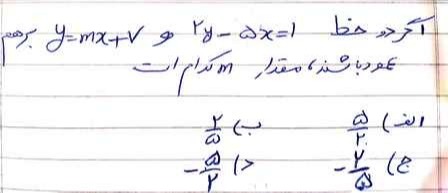 اگر دو خط ۲y - ۵x = ۱ و y = mx + ۷ برهم
عمود باشند، مقدار m کدام است
الف) ۵/۲ ب) ۲/۵
ج) -۲/۵ د) -۵/۲